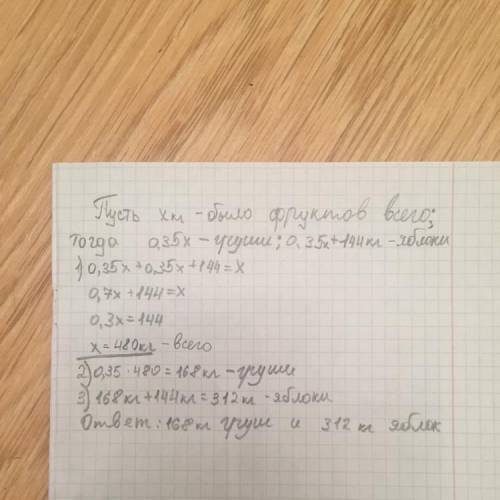 Пусть х кг - было фруктов всего;
тогда 0,35х - груши; 0,35х+144кг - яблоки
1) 0,35х+0,35х+144=х
0,7х+144=х
0,3х=144
х=480кг - всего
2) 0,35·480=168кг - груши
3) 168кг+144кг=312кг - яблоки
Ответ: 168кг груш и 312кг яблок